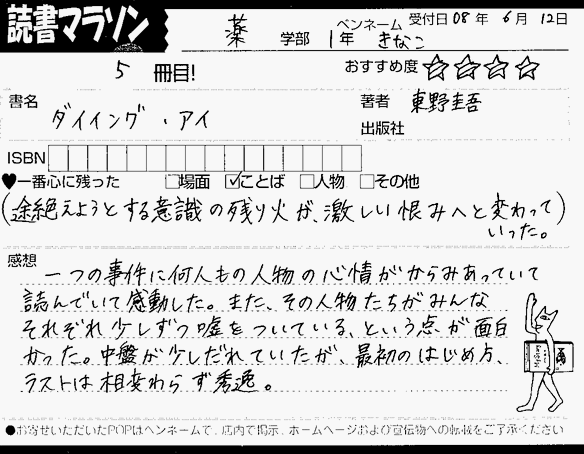 読書マラソン
薬 学部 1年 ペンネーム きなこ 受付日 08年 6月 12日
5 冊目! おすすめ度 ☆☆☆☆
書名 ダイイング・アイ
著者 東野圭吾
出版社
ISBN
♥一番心に残った □場面 ☑ことば □人物 □その他
(途絶えようとする意識の残り火が、激しい恨みへと変わって
いった。)
感想
一つの事件に何人もの人物の心情がからみあっていて
読んでいて感動した。また、その人物たちがみんな
それぞれ少しずつ嘘をついている、という点が面白
かった。中盤が少しだれていたが、最初のはじめ方、
ラストは相変わらず秀逸。
●お寄せいただいたPOPはペンネームで、店内で掲示、ホームページおよび宣伝物への転載をご了承ください